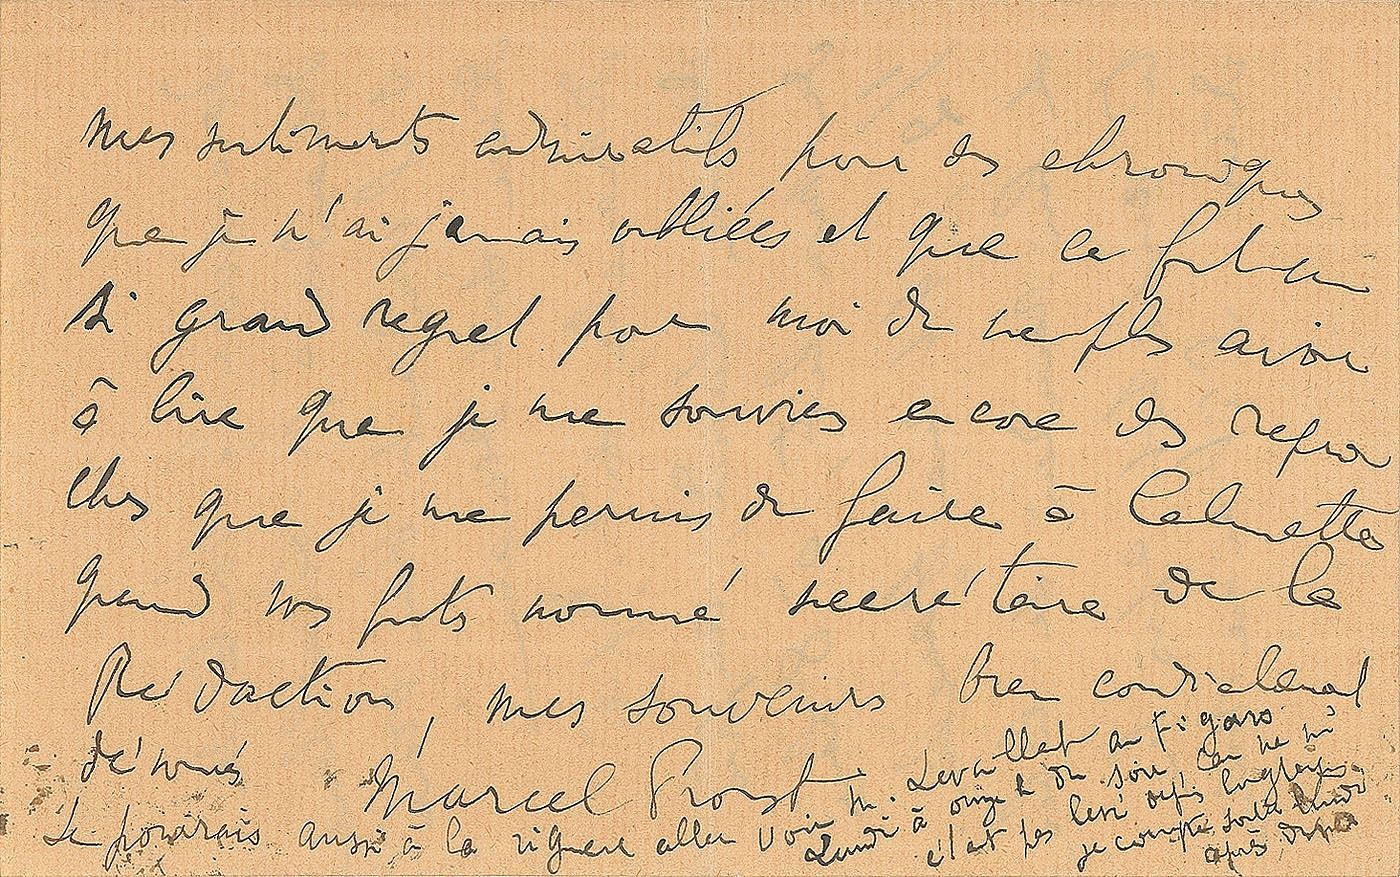 mes sentiments admiratifs pour des chroniques
que je n'ai jamais oubliées et que ce fut un
si grand regret pour moi de ne plus avoir
à lire que je me souviens encore des repro
ches que je me permis de faire à Calmette
quand vous futes nommé secrétaire de la
Rédaction, mes souvenirs bien cordialement
dévoués
Marcel Proust
Je pourrais aussi à la rigueur aller voir M. Levallet au Figaro
Lundi à onze h du soir, car ne m'
étant pas levé depuis longtemps,
je compte sortir Lundi
après dîner